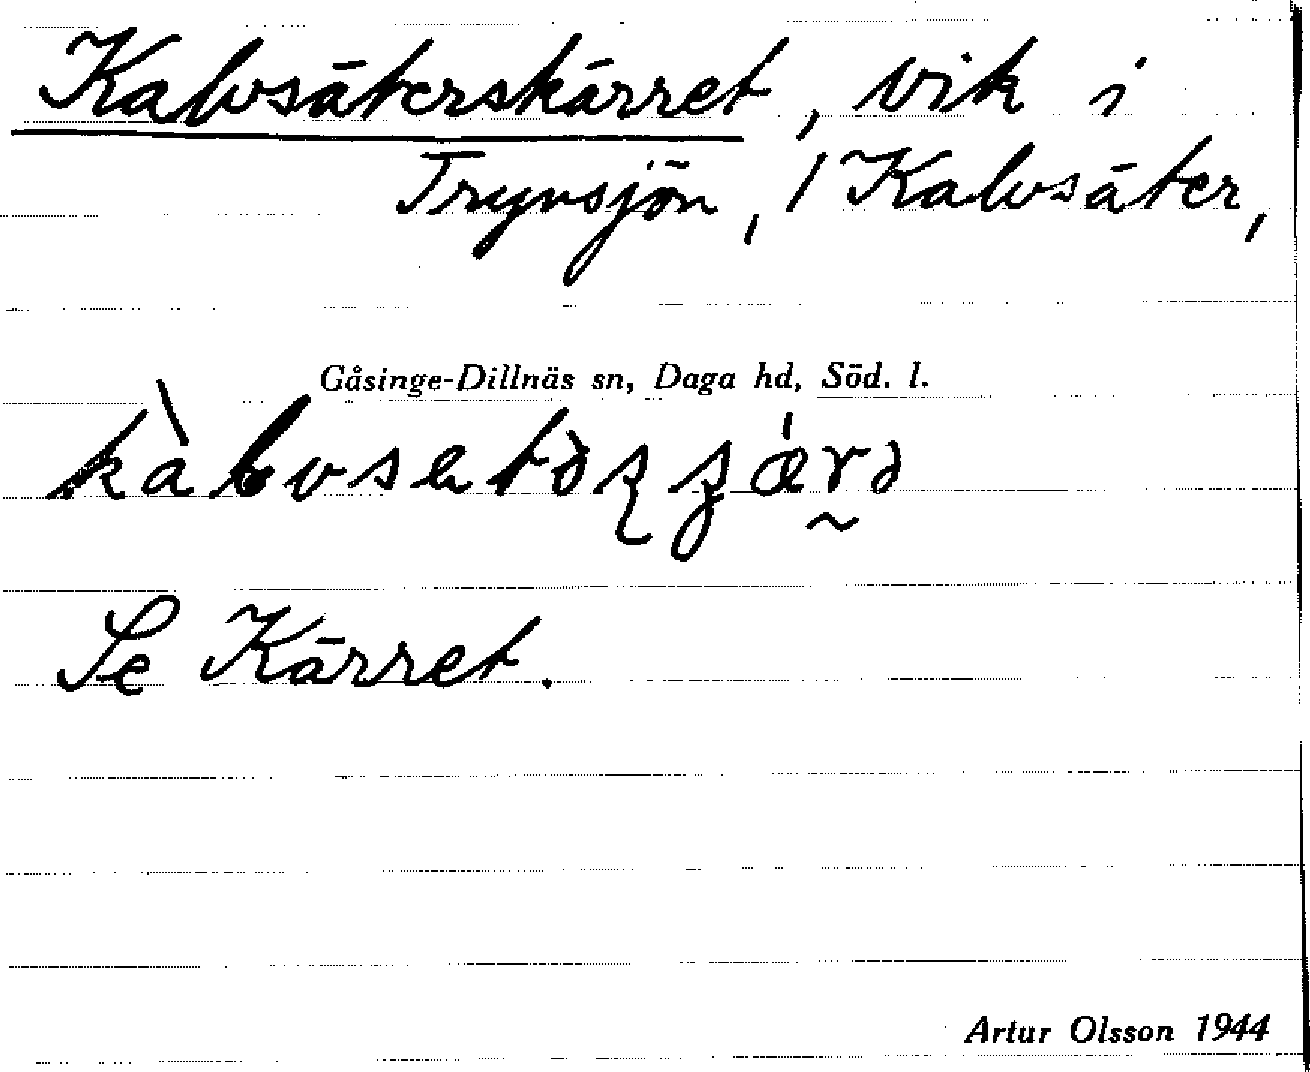 Kalvsäterskärret, vik i
Trynsjön, / Kalvsäter,
Gåsinge-Dillnäs sn, Daga hd, Söd. l.
Se Kärret.
Artur Olsson 1944